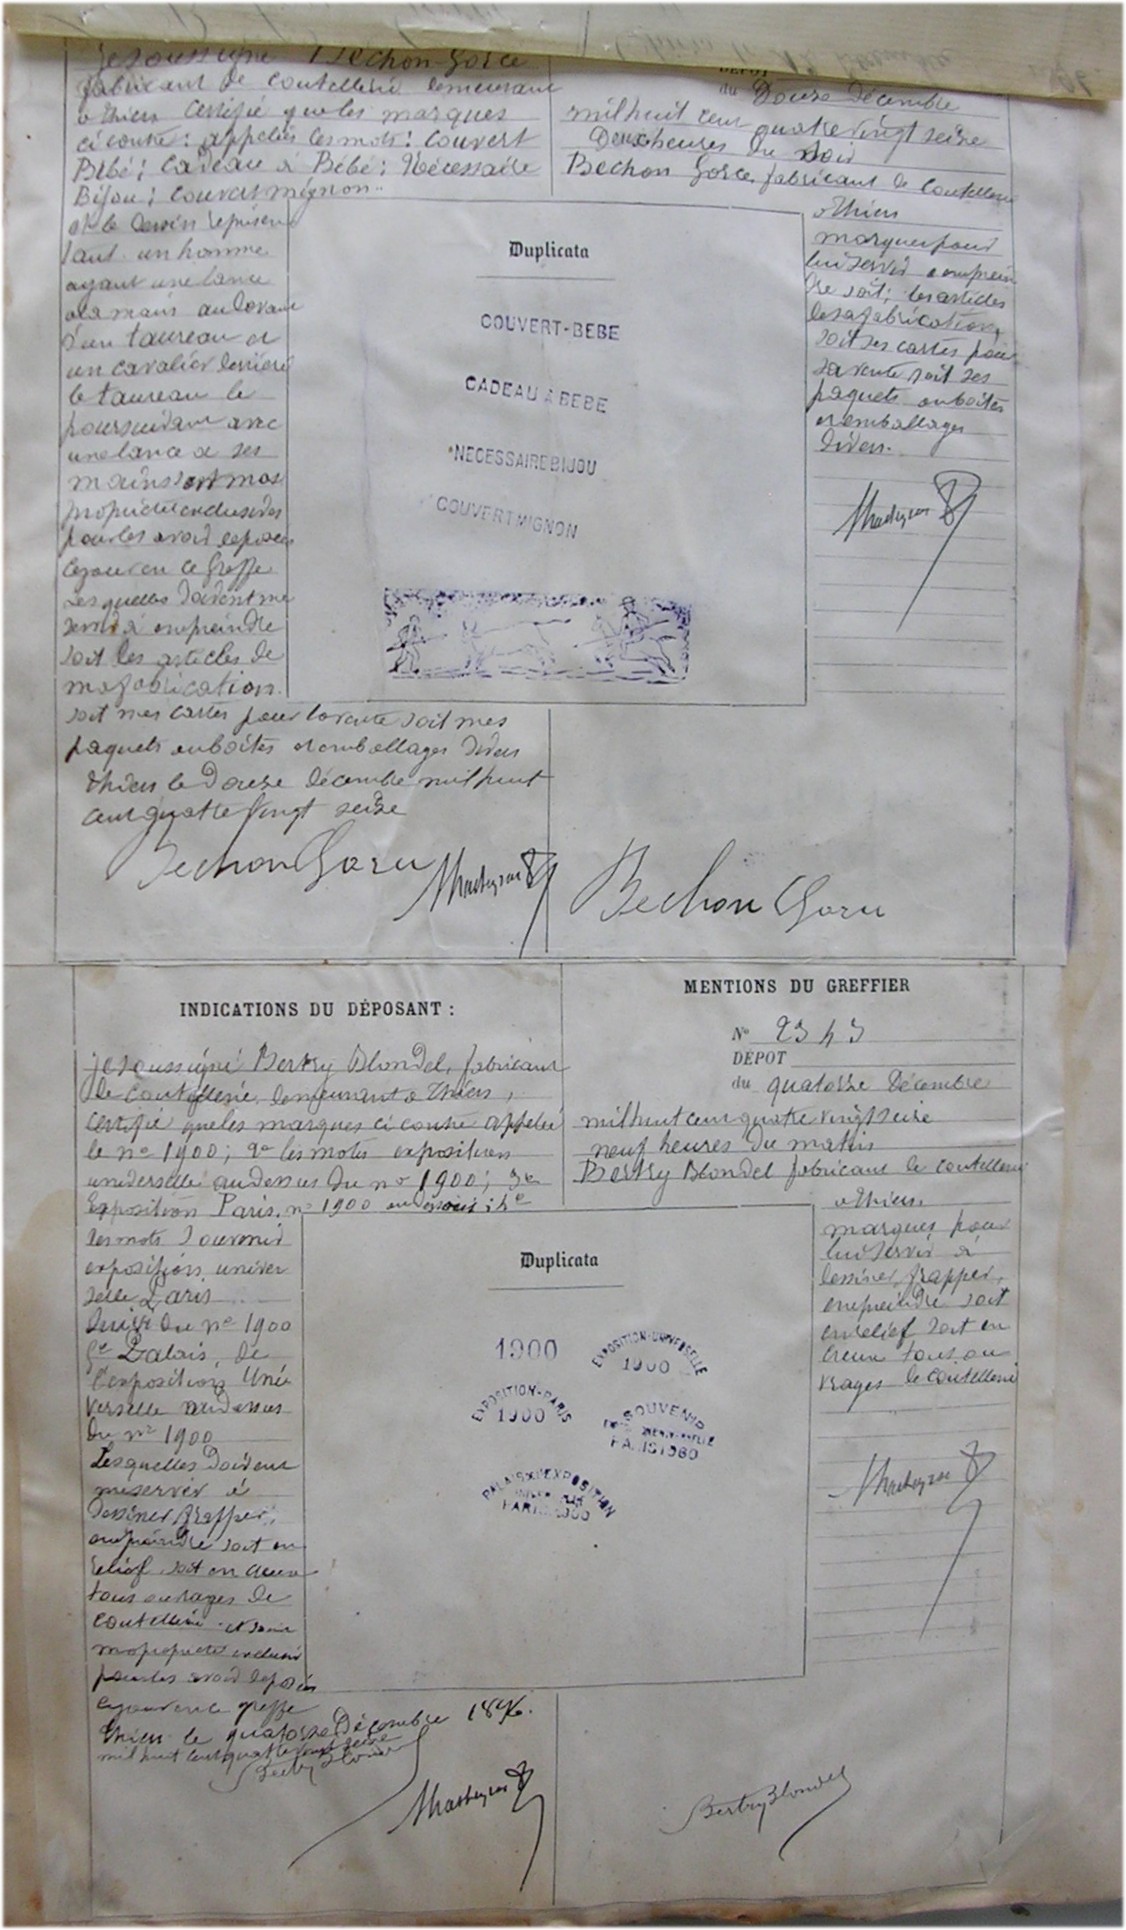 Je soussigné Bechon-Gorce
fabricant de coutellerie demeurant
à Thiers certifie que les marques
ci contre: appelées les mots: Couvert
Bébé; Cadeau à Bébé; Nécessaire
Bijou; couvert mignon
et le dessin représen
tant un homme
ayant une lance
à la main au devant
d'un taureau et
un cavalier derrière
le taureau le
poursuivant avec
une lance à ses
mains sont mas
propriété exclusives
pour les avoir déposées
ce jour en ce Greffe
Lesquelles doivent me
servir à empreindre
soit les articles de
ma fabrication
soit mes cartes pour la vente soit mes
paquets ou boîtes et emballages divers
Thiers le Douze décembre mil huit
cent quatre vingt seize
Bechon Gorce
DÉPÔT
du Douze Décembre
mil huit cent quatre vingt seize
Deux heures du soir
Bechon Gorce, fabricant de coutellerie
à Thiers
marques pour
lui servir à emprein
dre soit; les articles
de sa fabrication,
soit ses cartes pour
sa vente soit ses
paquets ou boîtes
et emballages
divers.
Duplicata
COUVERT-BEBE
CADEAU A BEBE
NECESSAIRE BIJOU
COUVERT MIGNON
Bechon Gorce
INDICATIONS DU DÉPOSANT :
Je soussigné Bertry Blondel, fabricant
de coutellerie, demeurant à Thiers,
certifie que les marques ci contre appelées
le no 1900; 2o les mots exposition
universelle au dessus du no 1900; 3o
Exposition Paris, no 1900 au dessous; 4o
les mots Souvenir
exposition univer
selle Paris
suivi du no 1900
5o Palais, de
l'exposition Uni
verselle au dessus
du no 1900
Lesquelles doivent
me servir à
dessiner, frapper,
empreindre soit en
relief soit en creux
tous ouvrages de
coutellerie et sont
ma propriété exclusive
pour les avoir déposées
ce jour en ce greffe
Thiers le quatorze Décembre 1896.
mil huit cent quatre vingt seize
Bertry Blondel
MENTIONS DU GREFFIER
No 2343
DÉPOT
du quatorze Décembre
mil huit cent quatre vingt seize
neuf heures du matin
Bertry Blondel fabricant de coutellerie
à Thiers.
marques pour
lui servir à
dessiner, frapper,
empreindre soit
en relief soit en
creux tous ou
vrages de coutellerie
Duplicata
1900
EXPOSITION-UNIVERSELLE
1900
EXPOSITION-PARIS
1900
SOUVENIR
PARIS 1900
PALAIS DE L'EXPOSITION
PARIS 1900
Bertry Blondel